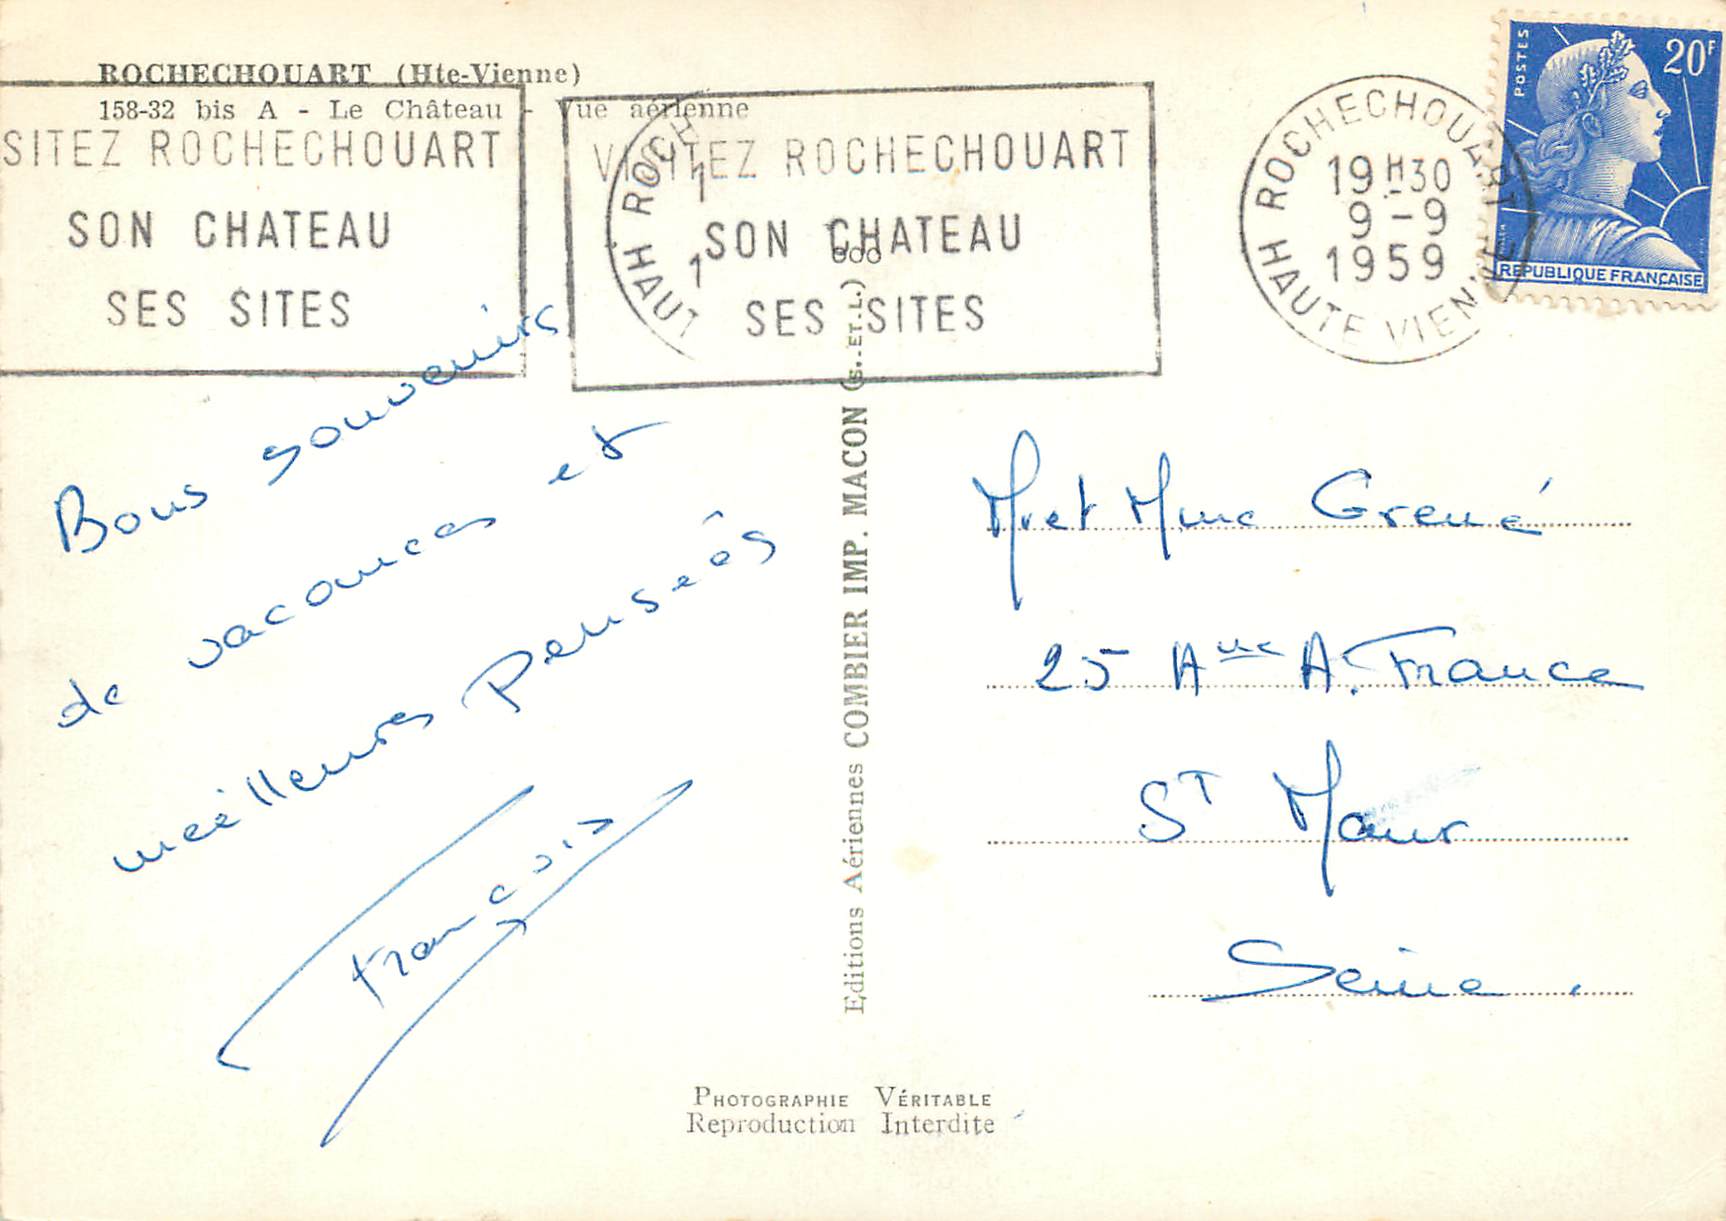 ROCHECHOUART (Hte-Vienne)
158-32 bis A - Le Château - Vue aérienne
SITEZ ROCHECHOUART
SON CHATEAU
SES SITES
VISITEZ ROCHECHOUART
SON CHATEAU
SES SITES
ROCH
HAUT
ROCHECHOUART
19H30
9-9
1959
HAUTE VIEN
POSTES
20F
REPUBLIQUE FRANÇAISE
Bons souvenirs
de vacances et
meilleures Pensées
François
Editions Aériennes COMBIER IMP. MACON (S. ET. L.)
Mr et Mme Grené
25 Aue A. France
ST Maur
Seine.
PHOTOGRAPHIE VÉRITABLE
Reproduction Interdite